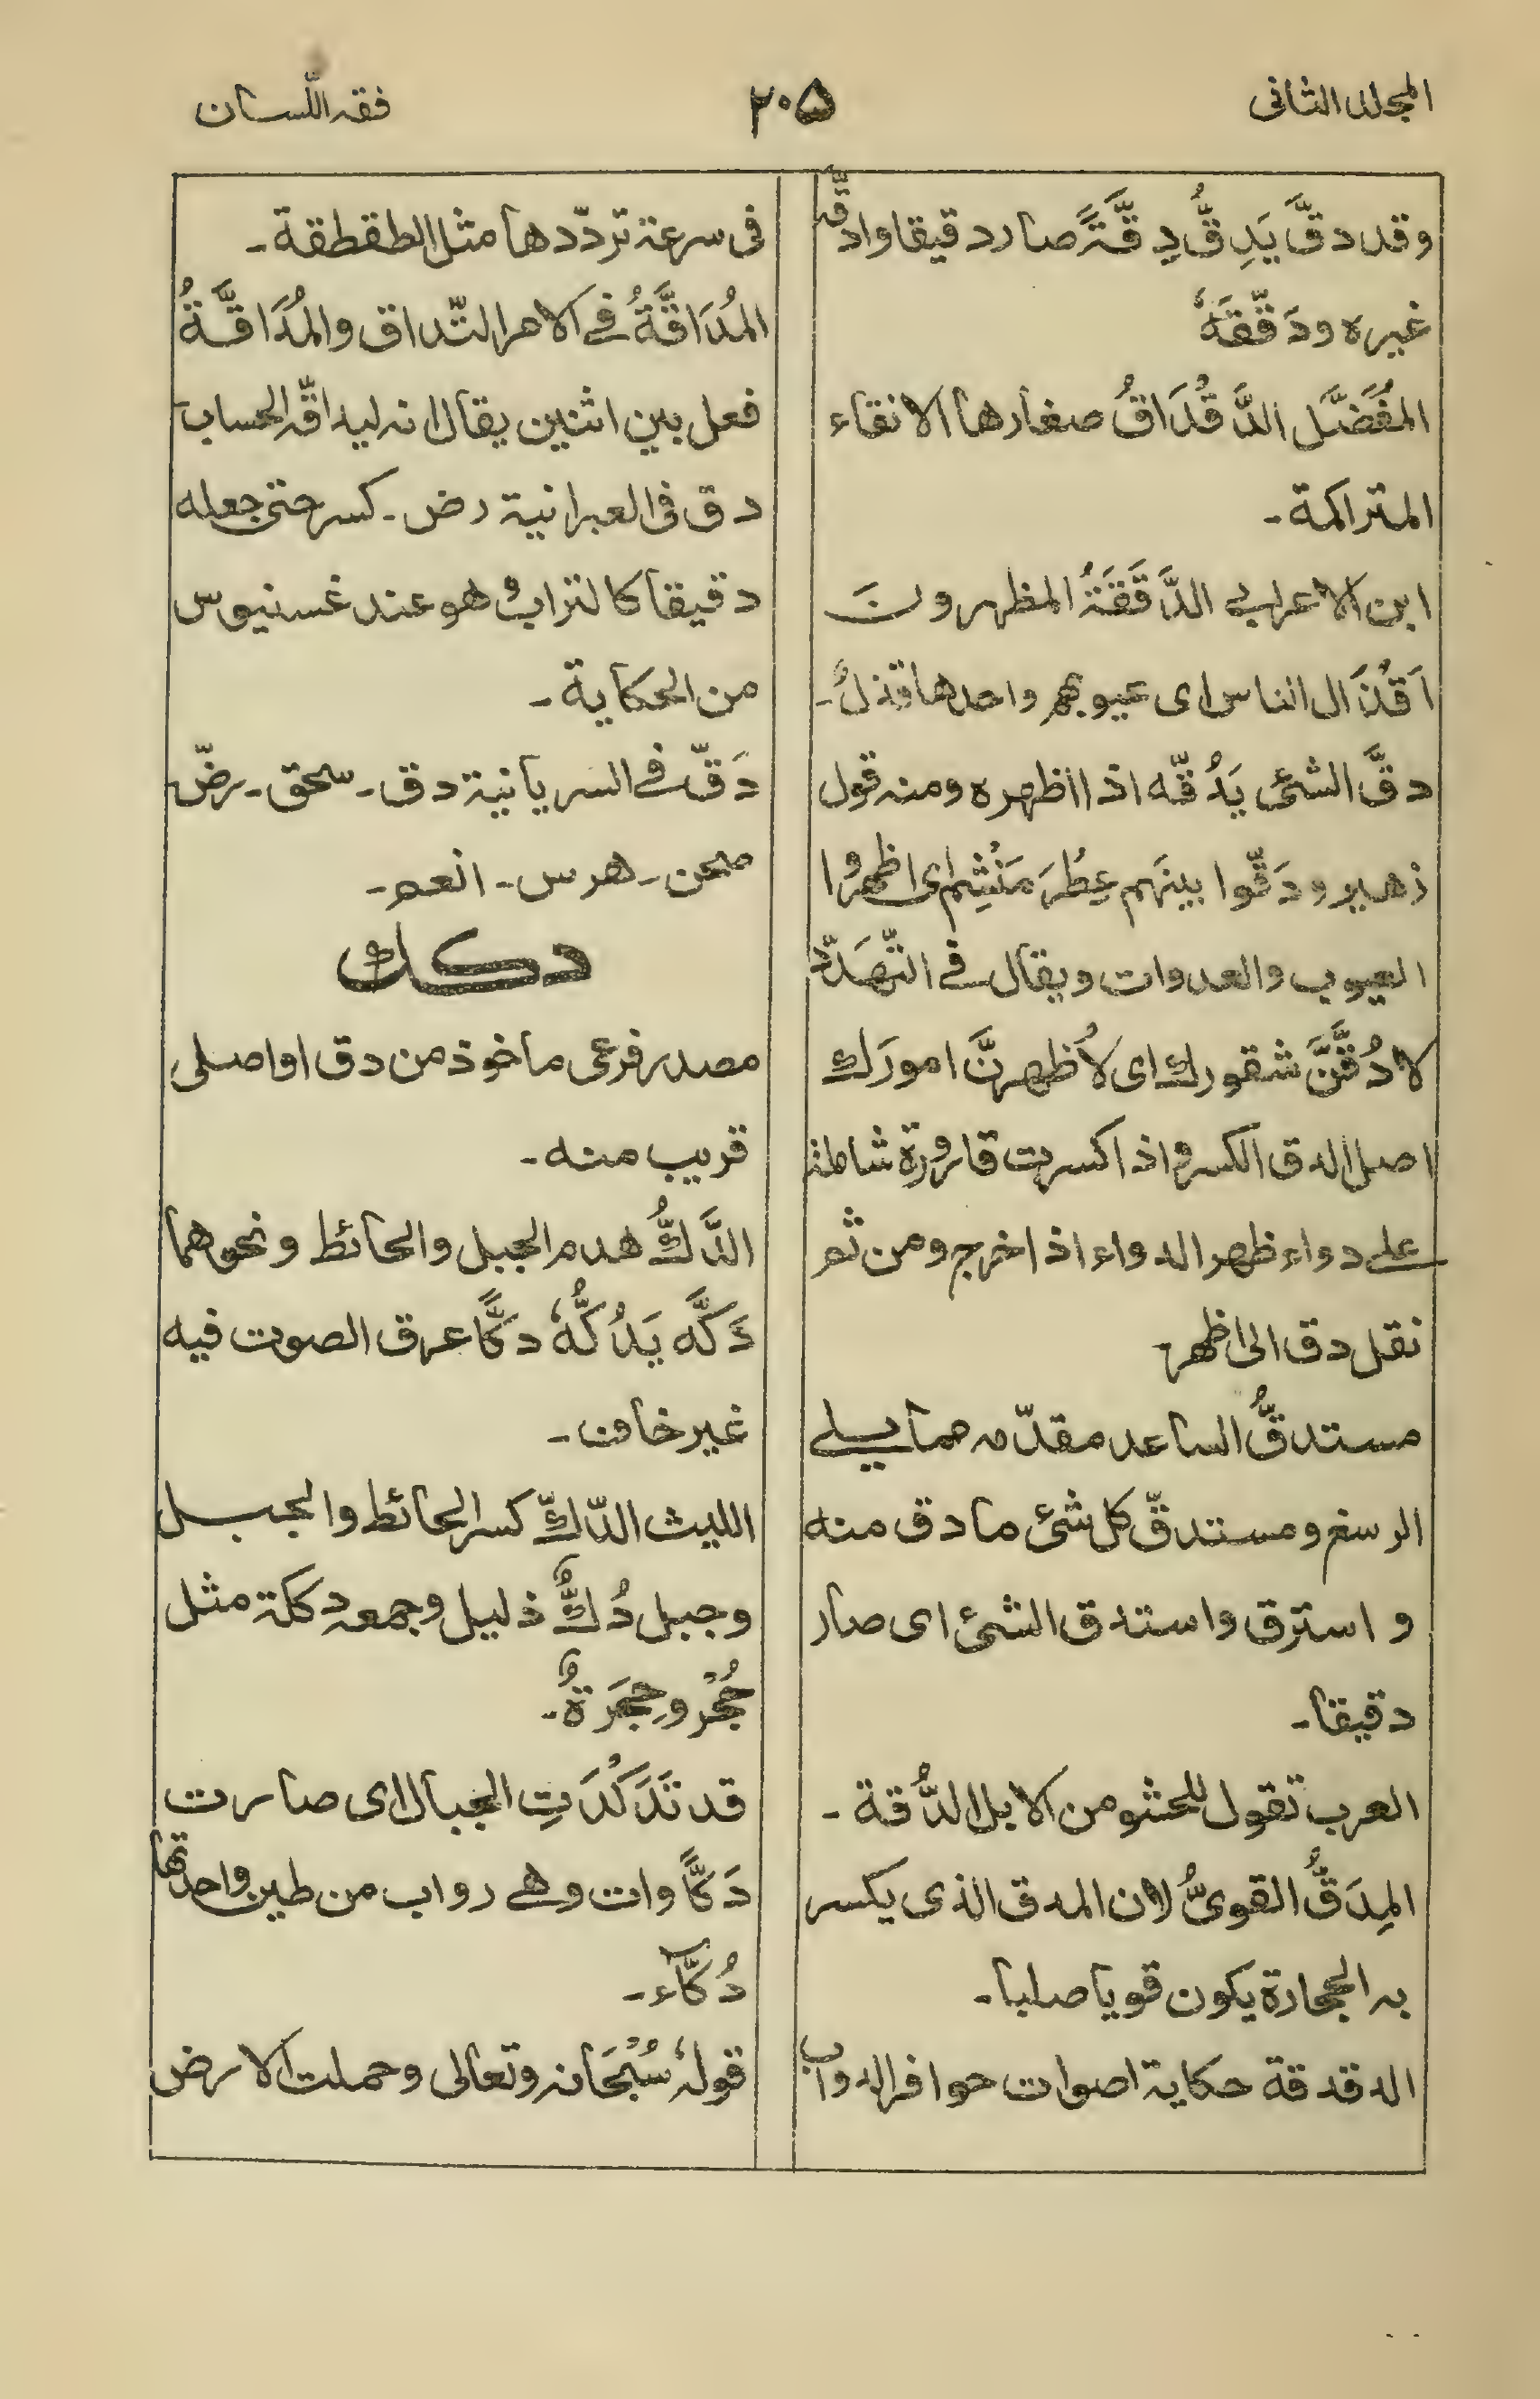 المجلد الثانى
٢٠٥
فقه اللّسان
وقد دقَّ يَدِقُّ دِقَّةً صار دقيقا وادقّه
غيره ودَقّقَهٗ
المُفَضَّل الدَّقْدَاقُ صغارها الانقاء
المتراكمة ـ
ابن الاعرابى الدَّقَقَةُ المظهرون
اَقْذَال الناس اى عيوبهم واحدها قذلٌ ـ
دقَّ الشئ يَدُقّه اذا اظهره ومنه قول
زهير ودَقّوا بينهم عِطْرَ مَنْشِم اى اظهروا
العيوب والعدوات ويقال فى التّهَدّد
لادُقَّنَّ شقورك اى لاُظهرنَّ امورَك
اصل الدق الكسر واذا كسرت قارورة شاملة
على دواء ظهر الدواء اذا خرج ومن ثم
نقل دق الى اظهر
مستدقُّ الساعد مقدّمه مما يلى
الرسغ ومستدقّ كل شئ ما دق منه
و استرق واستدق الشئ اى صار
دقيقا ـ
العرب تقول للحشو من الابل الدُّقة ـ
المِدَقُّ القوىُّ لان المدق الذى يكسر
به الحجارة يكون قويا صلبا ـ
الدقدقة حكاية اصوات حوافر الدواب
فى سرعة تردّدها مثل الطقطقة ـ
المُدَاقَّةُ فى الامر التّداق والمُدَاقَّةُ
فعل بين اثنين يقال انه ليداقّه الحساب
دق فى العبرانية رض ـ كسر حتى جعله
دقيقا كالتراب وهو عند غسنيوس
من الحكاية ـ
دَقّ فى السريانية دق ـ سحق ـ رضّ
صحن ـ هرس ـ انعم ـ
دكك
مصدر فرعى ماخوذ من دق او اصلى
قريب منه ـ
الدَّكُّ هدم الجبل والحائط ونحوهما
دَكَّه يَدُكُّهٗ دكًّا عرق الصوت فيه
غير خاف ـ
الليث الدّكّ كسر الحائط والجبل
وجبل دُكٌّ ذليل وجمعه دككة مثل
جُحْر وحِجَرَةٌ ـ
قد تَدَكْدَكَتِ الجبال اى صارت
دَكَّاوات وهى رواب من طين واحدتها
دُكَّاء ـ
قولهٗ سُبْحَانه وتعالى وحملت الارض